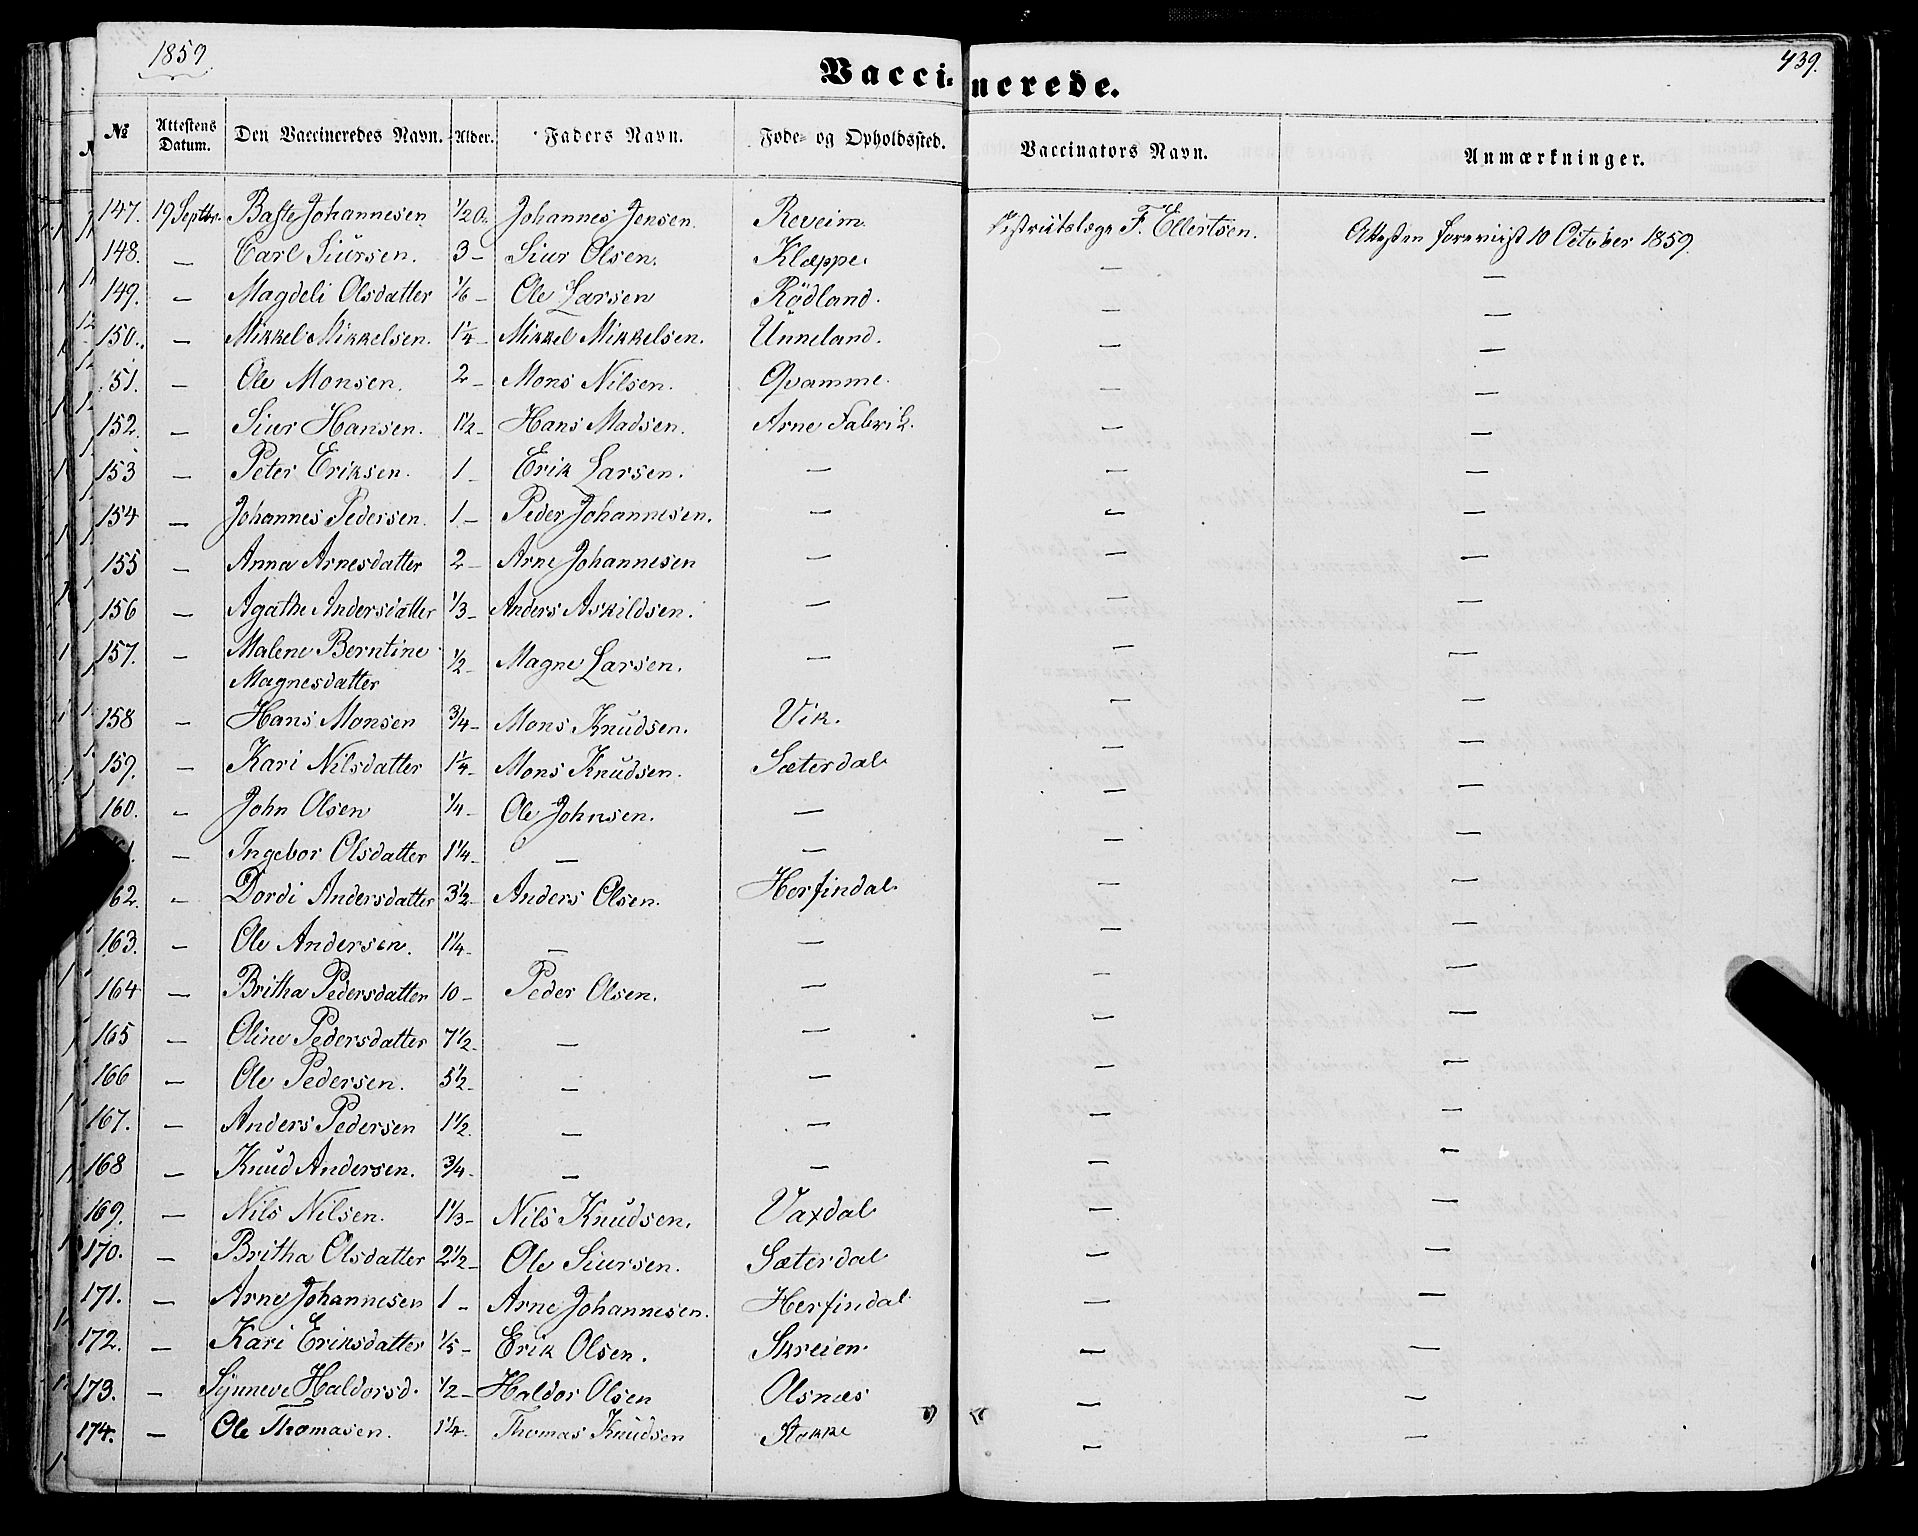 1859
439.
Vaccinerede.
№ Attestens Datum. Den Vaccineredes Navn. Alder. Faders Navn. Føde- og Opholdssted. Vaccinators Navn. Anmærkninger.
147. 19 Septbr. Johannesen 1/20. Johannes Jensen. Reveim. Districtslæge F. Ellertsen. Attesten foreviist 10 October 1859.
148. — Carl Siürsen. 3 — Siur Olsen. Klæppe. — —
149. — Magdeli Olsdatter 1/6 — Ole Larsen Rödland. — —
150. — Mikkel Mikkelsen. 1 1/4 — Mikkel Mikkelsen. Ünneland. — —
151. — Ole Monsen. 2 — Mons Nilsen. Qvamme. — —
152. — Siur Hansen. 1 1/2 — Hans Madsen. Arne Fabrik. — —
153 — Peter Eriksen. 1 — Erik Larsen. — — —
154 — Johannes Pedersen. 1 — Peder Johannesen. — — —
155 — Anna Arnesdatter 2 — Arne Johannesen — — —
156 — Agathe Andersdatter 1/3 — Anders Askildsen. — — —
157. — Malene Berntine
Magnesdatter 1/2 — Magne Larsen. — — —
158 — Hans Monsen 3/4 — Mons Knüdsen. Vik. — —
159. — Kari Nilsdatter 1 1/4 — Mons Knüdsen. Sæterdal — —
160. — John Olsen 1/4 — Ole Johnsen. — — —
— Ingebor Olsdatter 1 1/4 — — — — —
162. — Dordi Andersdatter 3 1/2 — Anders Olsen. Herfindal — —
163. — Ole Andersen. 1 1/4 — — — — —
164 — Britha Pedersdatter 10 — Peder Olsen. — — —
165 — Oline Pedersdatter 7 1/2 — — — — —
166 — Ole Pedersen. 5 1/2 — — — — —
167. — Anders Pedersen 1 1/2 — — — —
168 — Knüd Andersen. 3/4 — — — — —
169. — Nils Nilsen. 1 1/3 — Nils Knüdsen. Vaxdal — —
170. — Britha Olsdatter 2 1/2 — Ole Siursen. Sæterdal — —
171. — Arne Johannesen 1 — Arne Johannesen. Herfindal — —
172. — Kari Eriksdatter 1/5 — Erik Olsen. Skreien — —
173. — Synneve Haldorsd. 1/2 — Haldor Olsen Olsnæs — —
174. — Ole Thomasen. 1 1/4 — Thomas Knüdsen Stokke — —